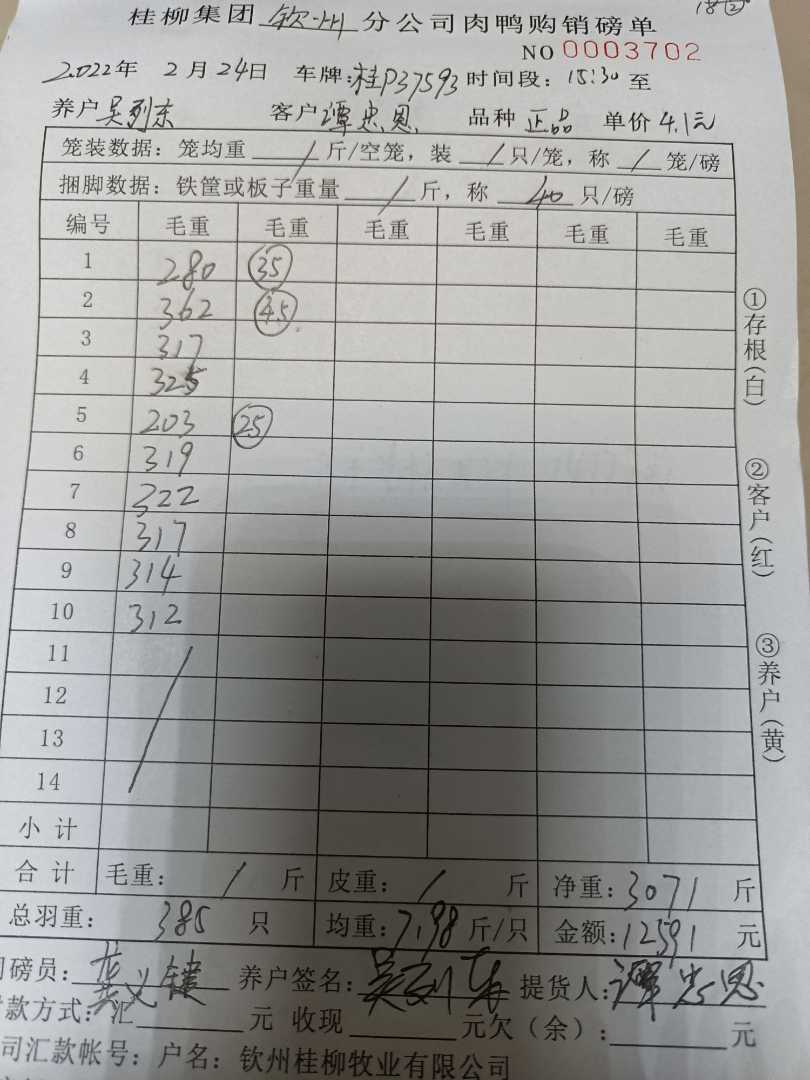 18②
桂柳集团 钦州 分公司肉鸭购销磅单
NO 0003702
2022年 2月24日 车牌:桂P37593 时间段: 15:30 至
养户 吴列东 客户 谭忠恩 品种 正品 单价 4.1元
笼装数据: 笼均重 / 斤/空笼, 装 / 只/笼, 称 / 笼/磅
捆脚数据: 铁筐或板子重量 / 斤, 称 40 只/磅
编号 毛重 毛重 毛重 毛重 毛重 毛重
1 280 35
2 362 45
3 317
4 325
5 203 25
6 319
7 322
8 317
9 314
10 312
11
12
13
14
小计
合计 毛重: / 斤 皮重: / 斤 净重: 3071 斤
总羽重: 385 只 均重: 7.98 斤/只 金额: 12591 元
司磅员: 养户签名: 吴列东 提货人: 谭忠恩
款方式: 汇 元 收现 元欠(余): 元
司汇款帐号: 户名: 钦州桂柳牧业有限公司
①存根(白)
②客户(红)
③养户(黄)